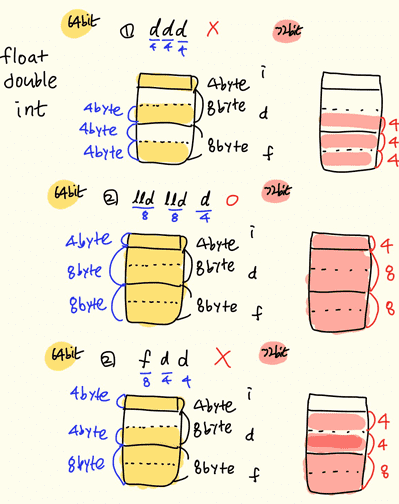 64bit ① d d d X 72bit
4 4 4
float
double
int
4byte i
4byte 8byte d
4byte 4
4byte 8byte f 4
4
64bit ② lld lld d O 72bit
8 8 4
4byte 4byte i 4
8byte 8byte d 8
8byte 8byte f 8
64bit ② f d d X 72bit
8 4 4
4byte 4byte i
4byte 8byte d 4
4
8byte 8byte f 8